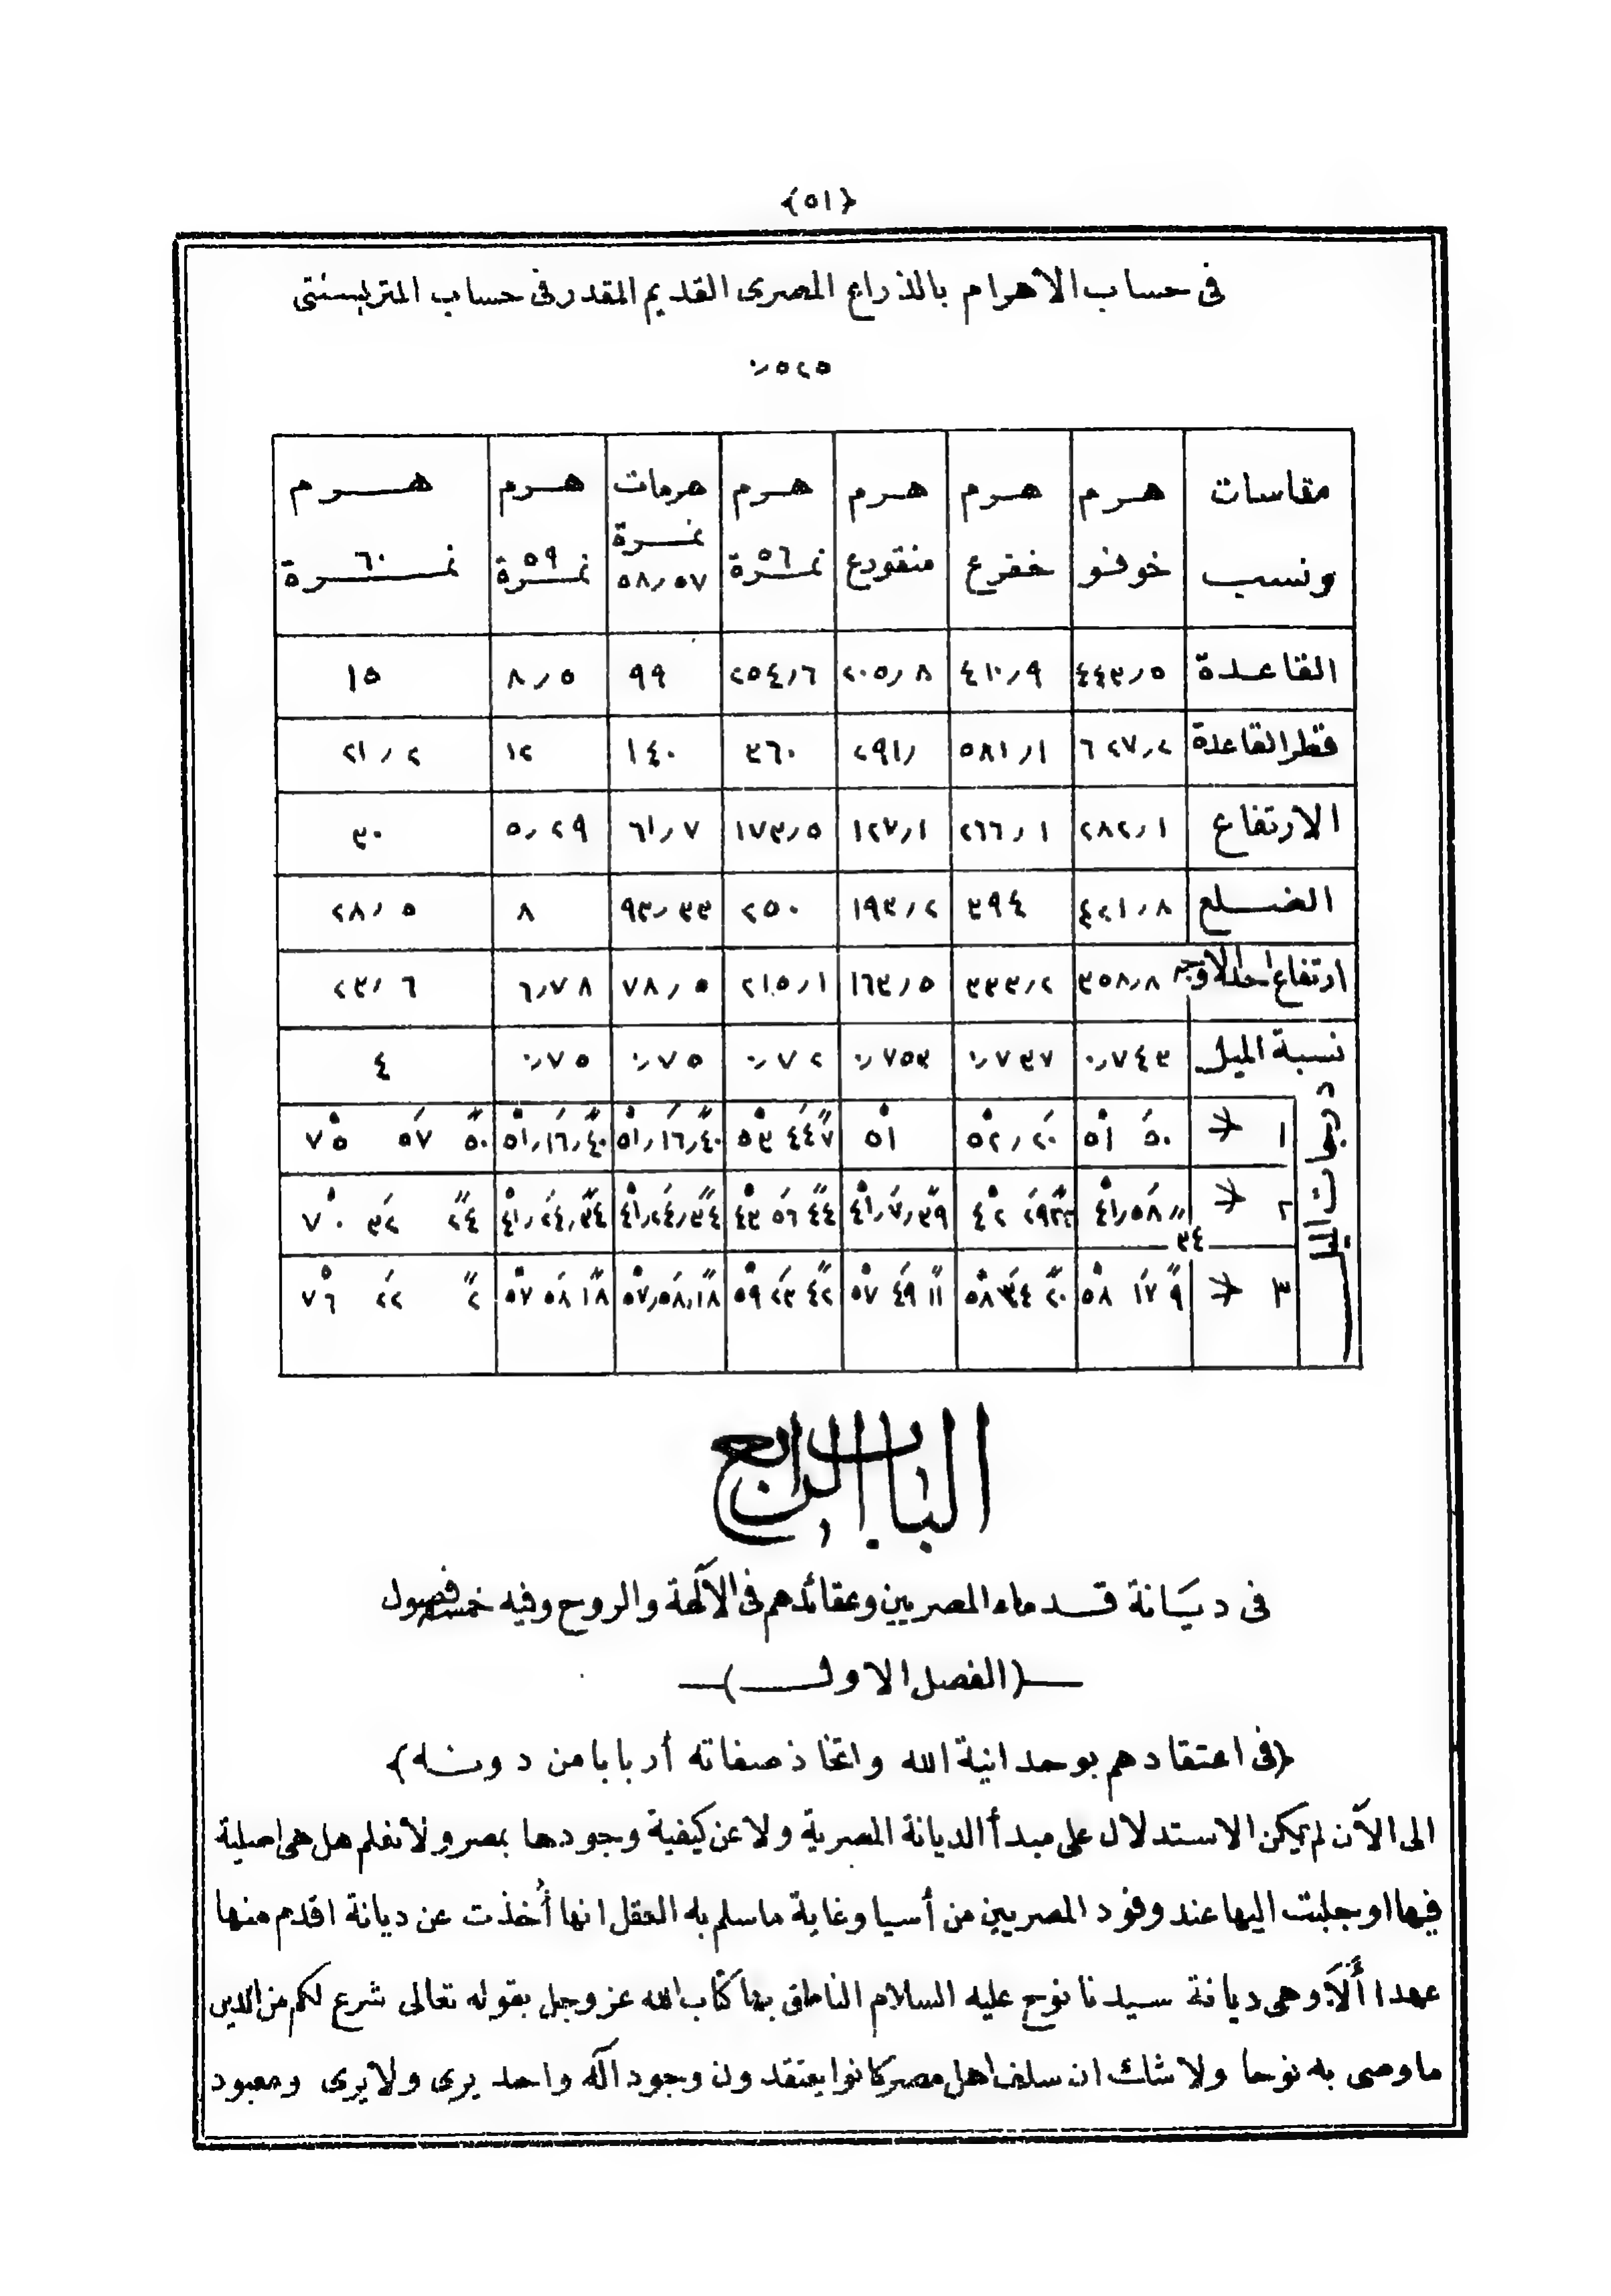 ﴿٥١﴾
فى حساب الاهرام بالذراع المصرى القديم المقدر فى حساب المتر بسنتى
٠٫٥٢٥
مقاسات ونسب | هرم خوفو | هرم خفرع | هرم منقورع | هرم نمرة ٥٦ | هرمات نمرة ٥٨٫٥٧ | هرم نمرة ٥٩ | هرم نمرة ٦٠
القاعدة | ٤٤٣٫٥ | ٤١٠٫٩ | ٢٠٥٫٨ | ٢٥٤٫٦ | ٩٩ | ٨٫٥ | ١٥
قطر القاعدة | ٦٢٧٫٢ | ٥٨١٫١ | ٢٩١٫ | ٣٦٠ | ١٤٠ | ١٢ | ٢١٫٢
الارتفاع | ٢٨٢٫١ | ٢٦٦٫١ | ١٢٧٫١ | ١٧٣٫٥ | ٦١٫٧ | ٥٫٢٩ | ٣٠
الضلع | ٤٢١٫٨ | ٣٩٤ | ١٩٣٫٢ | ٢٥٠ | ٩٣٫٣٣ | ٨ | ٢٨٫٥
ارتفاع احد الاوجه | ٣٥٨٫٨ | ٣٣٣٫٢ | ١٦٣٫٥ | ٢١٥٫١ | ٧٨٫٥ | ٦٫٧٨ | ٢٣٫٦
نسبة الميل | ٠٫٧٤٣ | ٠٫٧٣٧ | ٠٫٧٥٣ | ٠٫٧٢ | ٠٫٧٥ | ٠٫٧٥ | ٤
درجات الميل
١ | ٥١ ٥٠ | ٥٢٫٢٠ | ٥١ | ٥٣ ٤٤ ٧ | ٥١٫١٦٫٤٠ | ٥١٫١٦٫٤٠ | ٧٥ ٥٧ ٥٠
٢ | ٤١٫٥٨ ٣٤ | ٤٢ ٢٩ ٢٣ | ٤١٫٧٫٣٩ | ٤٣ ٥٦ ٤٤ | ٤١٫٢٤٫٣٤ | ٤١٫٢٤٫٣٤ | ٧٠ ٣٢ ٢٤
٣ | ٥٨ ١٧ ٩ | ٥٨ ٣٤ ٢٠ | ٥٧ ٤٩ ١١ | ٥٩ ٢٣ ٤٢ | ٥٧٫٥٨٫١٨ | ٥٧ ٥٨ ١٨ | ٧٦ ٢٢ ٢
الباب الرابع
فى ديَانة قدماء المصريين وعقائدهم فى الآلهة والروح وفيه خمسة فصول
(الفصل الاول)
﴿فى اعتقادهم بوحدانية الله واتخاذ صفاته أربابا من دونه﴾
الى الآن لم يكن الاستدلال على مبدأ الديانة المصرية ولا عن كيفية وجودها بمصر ولا نعلم هل هى اصلية
فيها او جلبت اليها عند وفود المصريين من أسيا وغاية ما سلم به العقل انها أُخذت عن ديانة اقدم منها
عهدا ألَا وهى ديانة سيدنا نوح عليه السلام الناطق بها كتاب الله عز وجل بقوله تعالى شرع لكم من الدين
ما وصى به نوحا ولا شك ان سلف اهل مصر كانوا يعتقدون وجود اله واحد يرى ولا يرى ومعبود